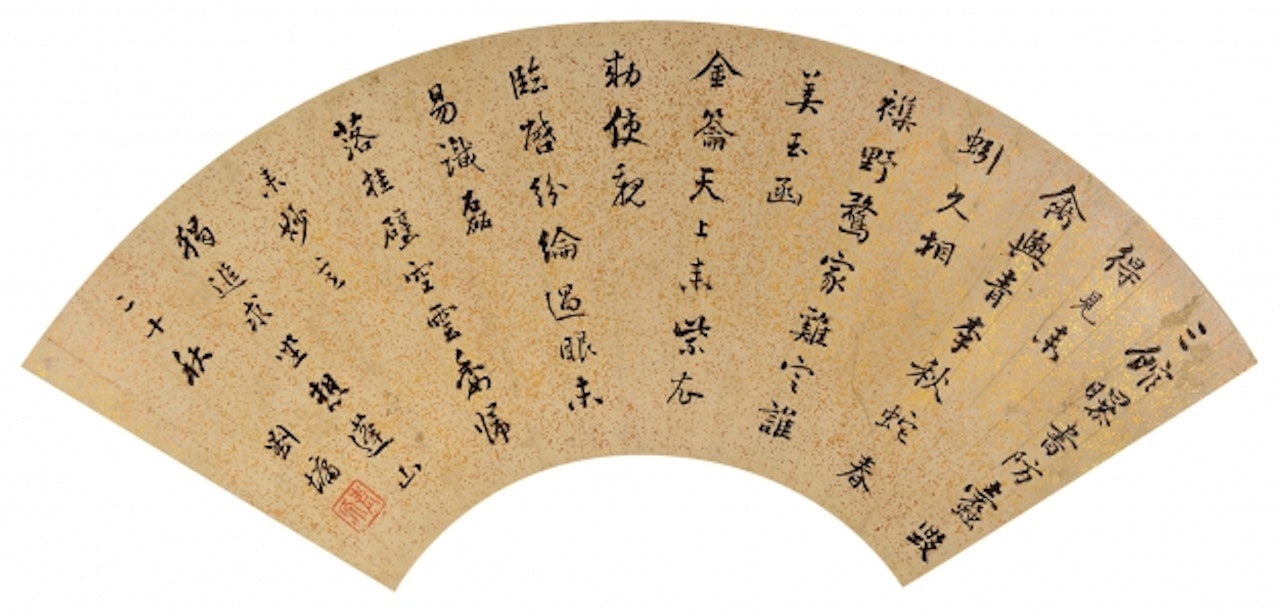 三館曝書防蠹毀
得見來
禽與青李秋蛇春
蚓久相
雜野鶩家雞定誰
美玉函
金籥天上來紫衣
勅使親
臨啓紛綸過眼未
易識磊
落挂壁空雲委歸
來妙意
獨追求坐想蓬山
二十秋
劉墉